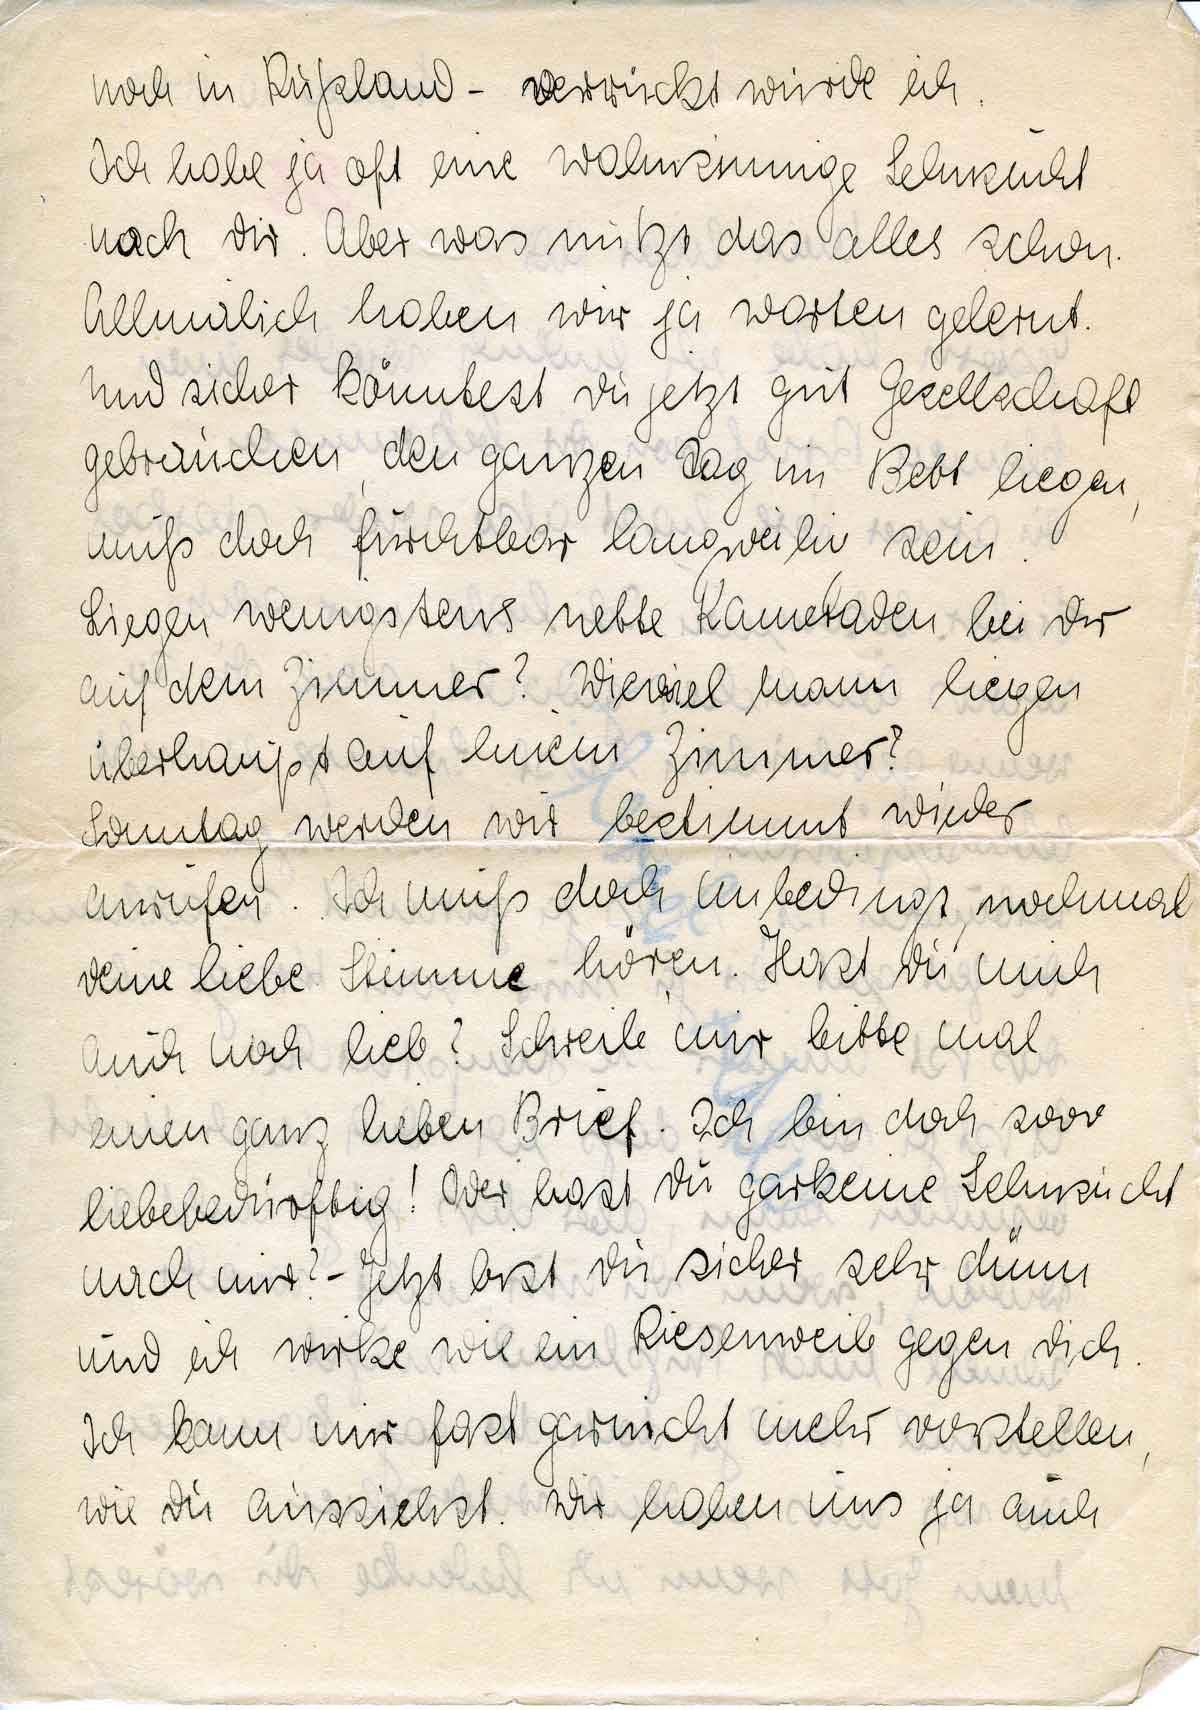 noch in Rußland - verrückt würde ich.
Ich habe ja oft eine wahnsinnige Sehnsucht
nach dir. Aber was nützt das alles schon.
Allmälich haben wir ja warten gelernt.
Und sicher könntest du jetzt gut Gesellschaft
gebrauchen, den ganzen Tag im Bett liegen,
muß doch furchtbar langweilig sein.
Liegen wenigstens nette Kameraden bei dir
auf dem Zimmer? Wieviel Mann liegen
überhaupt auf einem Zimmer?
Sonntag werden wir bestimmt wieder
anrufen. Ich muß doch unbedingt nochmal
deine liebe Stimme hören. Hast du mich
auch noch lieb? Schreib mir bitte mal
einen ganz lieben Brief. Ich bin doch sooo
liebebedürftig! Oder hast du garkeine Sehnsucht
nach mir? - Jetzt bist du sicher sehr dünn
und ich wirke wie ein Riesenweib gegen dich.
Ich kann mir fast garnicht mehr vorstellen,
wie du aussiehst. Wir haben uns ja auch